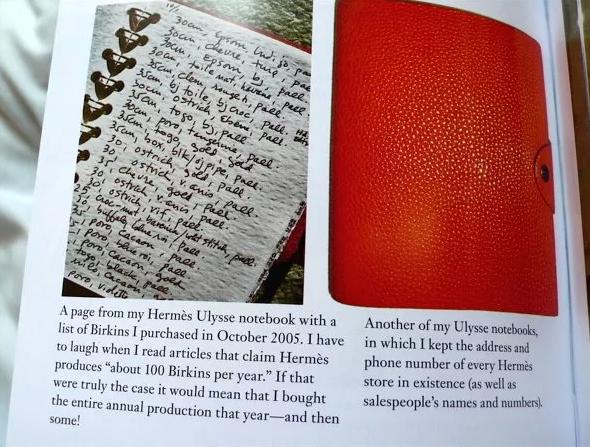 30cm, Epsom
30cm, chevre,
30cm, Epsom, bj, pall.
30cm, toile nat, Havane, pall.
35cm, clem, rough, pall.
35cm, bj toile, bj croc, pall.
30cm, ostrich, ebene, pall.
35cm, togo, bj, pall
30cm, poro, tangerine, pall.
35cm, togo, gold, gold
35cm, box, blk/bj pipe, pall.
30, ostrich, gold, pall.
35, ostrich, v. anis, pall.
30, chevre, gold, pall.
ostrich, v. anis, pall.
30, ostrich, vif, pall.
30, croc mat, wht stitch, pall.
buffalo, pall.
poro, cacaon, pall
poro, pall.
poro, cacaon, gold
togo, pall
cacaon,
poro, violette
A page from my Hermès Ulysse notebook with a
list of Birkins I purchased in October 2005. I have
to laugh when I read articles that claim Hermès
produces “about 100 Birkins per year.” If that
were truly the case it would mean that I bought
the entire annual production that year—and then
some!
Another of my Ulysse notebooks,
in which I kept the address and
phone number of every Hermès
store in existence (as well as
salespeople’s names and numbers).